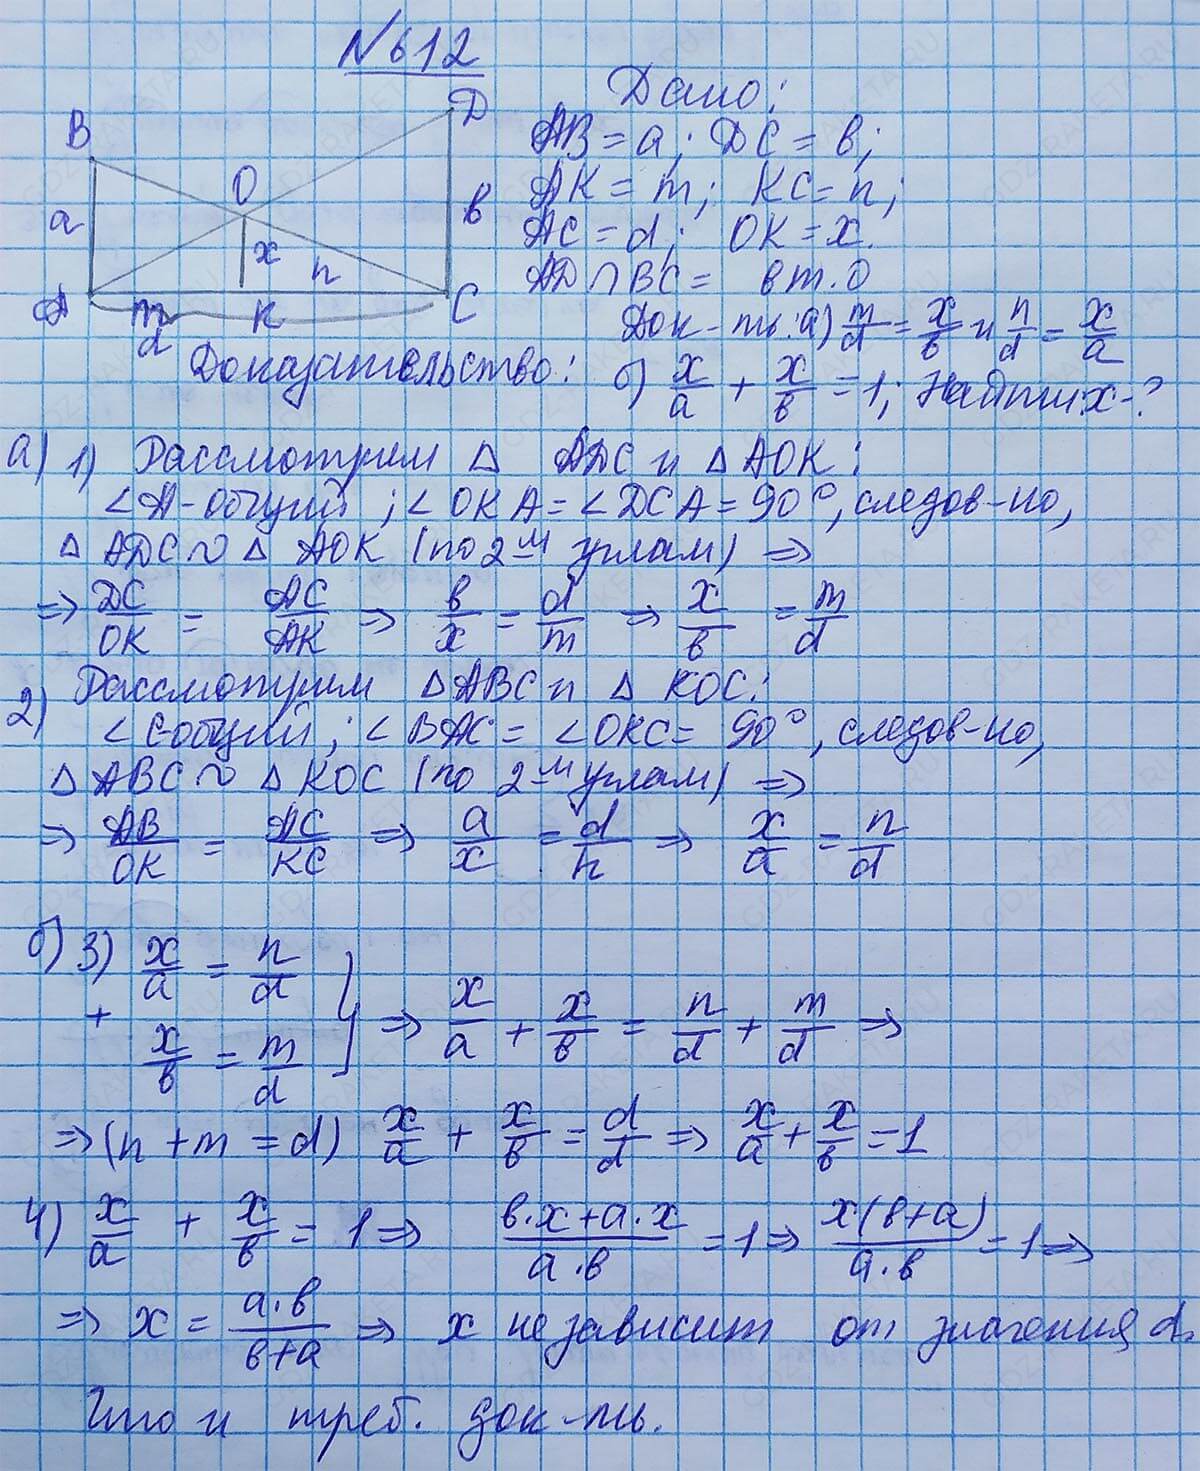 №612
Дано:
AB = a; DC = в;
AK = m; KC = n;
AC = d; OK = x.
AD ∩ BC = в т. O
B
D
O
a
x
в
n
A
m
K
C
d
Док-ть: а) m/d = x/в и n/d = x/a
Доказательство: б) x/a + x/в = 1; Найти: x-?
а) 1) Рассмотрим △ ADC и △ AOK:
∠A-общий; ∠OKA = ∠DCA = 90°, следов-но,
△ ADC ~ △ AOK (по 2-м углам) ⇒
⇒ DC/OK = AC/AK ⇒ в/x = d/m ⇒ x/в = m/d
2) Рассмотрим △ABC и △ KOC:
∠C-общий; ∠BAC = ∠OKC = 90°, следов-но,
△ ABC ~ △ KOC (по 2-м углам) ⇒
⇒ AB/OK = AC/KC ⇒ a/x = d/n ⇒ x/a = n/d
б) 3) x/a = n/d
+
x/в = m/d } ⇒ x/a + x/в = n/d + m/d ⇒
⇒ (n + m = d) x/a + x/в = d/d ⇒ x/a + x/в = 1
4) x/a + x/в = 1 ⇒ в·x + a·x/a·в = 1 ⇒ x(в+a)/a·в = 1 ⇒
⇒ x = a·в/в+a ⇒ x не зависит от значения d.
Что и треб. док-ть.